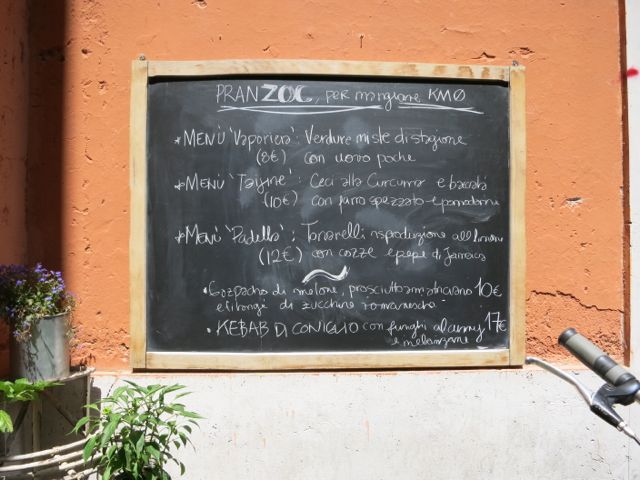 PRANZOC, per mangiare KMØ
*MENÙ 'Vaporiera': Verdure miste di stagione
(8€) con uovo poché
*MENÙ 'Tajine': Ceci alla Curcuma e
(10€) con farro spezzato e pomodorini
*Menù 'Padella': Tonnarelli al limone
(12€) con cozze e pepe di Jamaica
• Gazpacho di melone, prosciutto amatriciano 10€
di zucchine romanesche
• KEBAB DI CONIGLIO con funghi al curry 17€
e melanzane